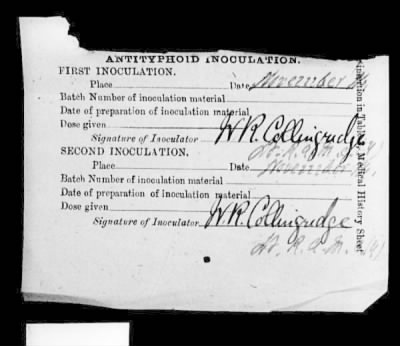 ANTITYPHOID INOCULATION.
FIRST INOCULATION.
Place Date November
Batch Number of inoculation material
Date of preparation of inoculation material
Dose given
Signature of Inoculator W.R. Collingridge
SECOND INOCULATION.
Place Date November
Batch Number of inoculation material
Date of preparation of inoculation material
Dose given
Signature of Inoculator W.R. Collingridge
insertion in Table , Medical History Sheet